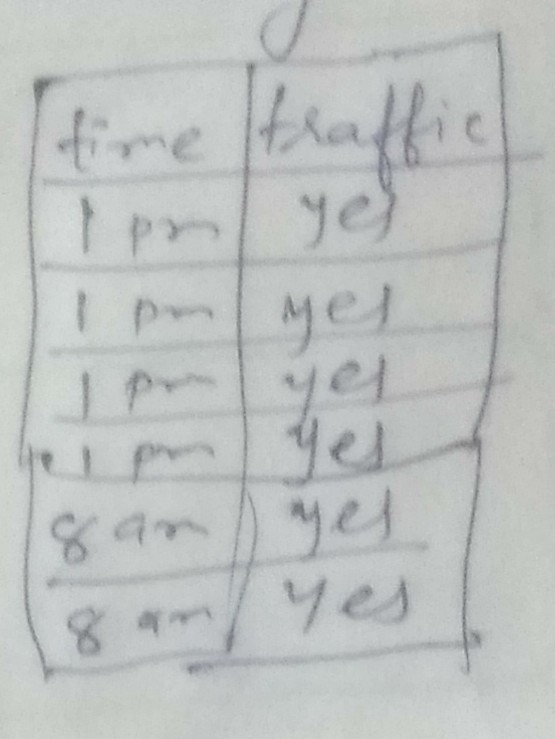 time traffic
1 pm yes
1 pm yes
1 pm yes
1 pm yes
8 am yes
8 am yes